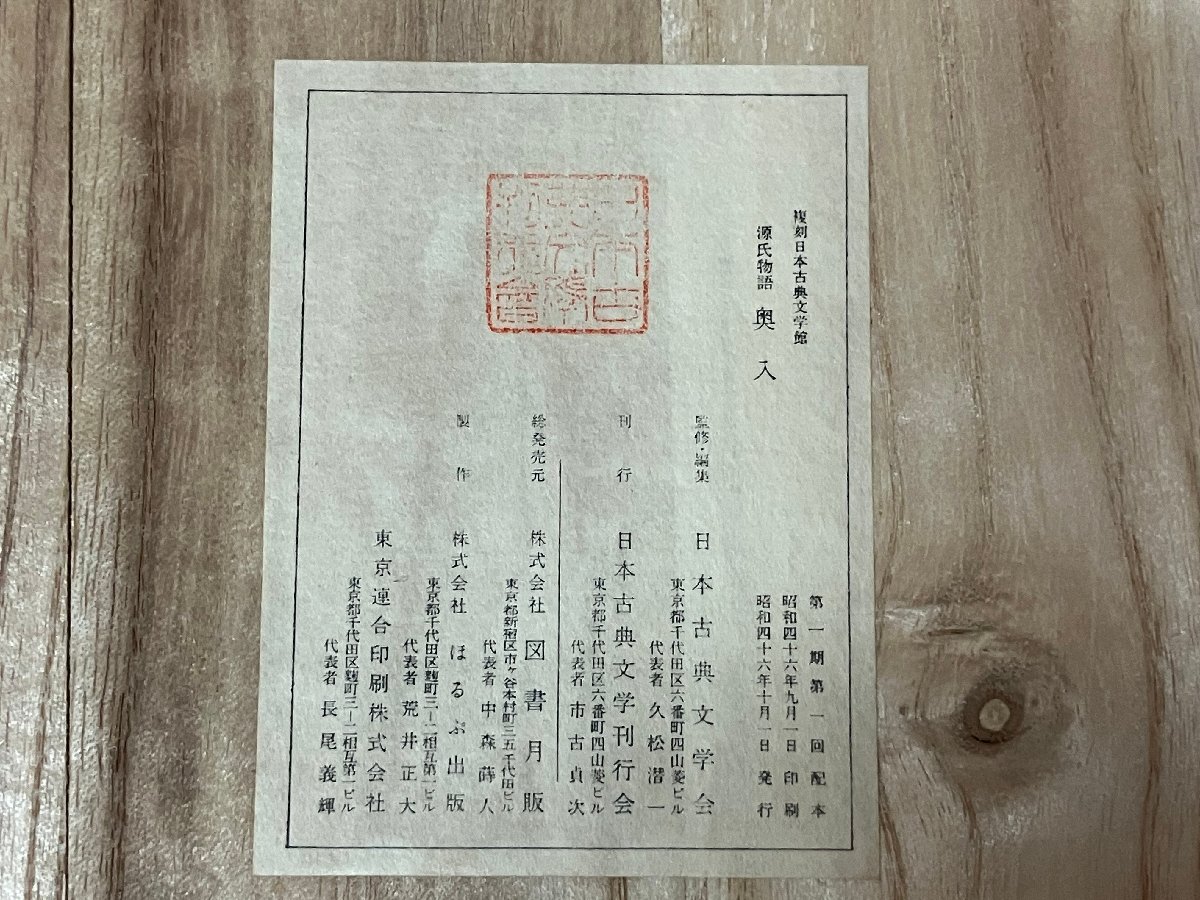 複刻日本古典文学館
源氏物語 奥入
第一期第一回配本
昭和四十六年九月一日 印刷
昭和四十六年十月一日 発行
監修・編集 日本古典文学会
東京都千代田区六番町四山菱ビル
代表者 久松潜一
刊行 日本古典文学刊行会
東京都千代田区六番町四山菱ビル
代表者 市古貞次
総発売元 株式会社 図書月販
東京都新宿区市ヶ谷本村町三五千代田ビル
代表者 中森蒔人
製作 株式会社 ほるぷ出版
東京都千代田区麹町三ー二相互第一ビル
代表者 荒井正大
東京連合印刷株式会社
東京都千代田区麹町三ー二相互第一ビル
代表者 長尾義輝